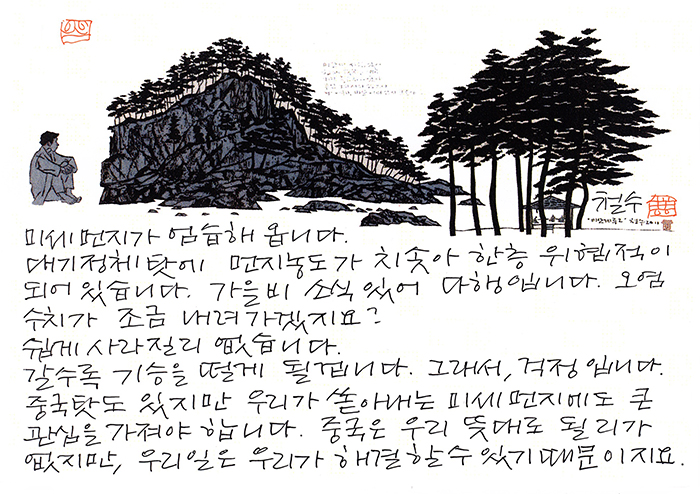 철수
미세먼지가 엄습해 옵니다.
대기정체 탓에 먼지농도가 치솟아 한층 위협적이
되어 있습니다. 가을비 소식 있어 다행입니다. 오염
수치가 조금 내려가겠지요?
쉽게 사라질리 없습니다.
갈수록 기승을 떨게 될겝니다. 그래서, 걱정입니다.
중국탓도 있지만 우리가 쏟아내는 미세먼지에도 큰
관심을 가져야 합니다. 중국은 우리 뜻대로 될리가
없지만, 우리일은 우리가 해결할 수 있기 때문이지요.